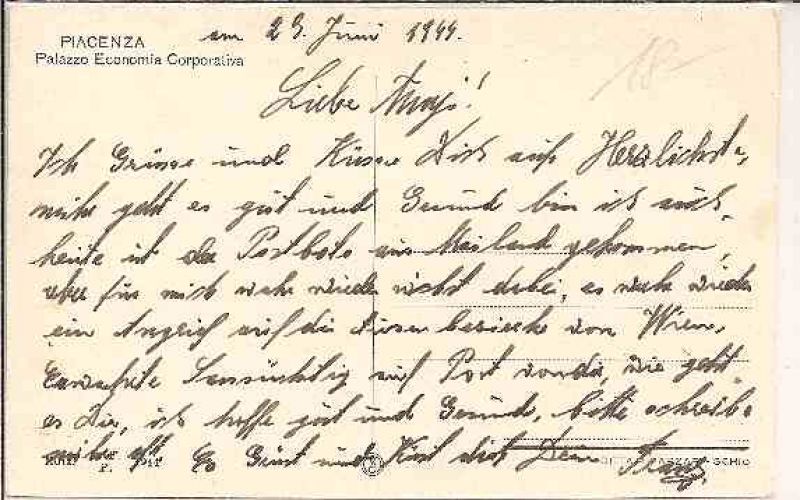 am 29. Juni 1944.
PIACENZA
Palazzo Economia Corporativa
18-
Liebe !
Ich Grüsse und Küsse Dich auf Herzlichste,
mihr geht es gut und Gesund bin ich auch,
heute ist der Postbote aus Mailand gekommen,
aber für mich wahr wieder nicht dabei, es wahr wieder
ein Angrief auf die bezierke von Wien,
Erwahrte Sensüchtig auf Post von dir, wie geht
es Dir, ich hoffe gut und Gesund, bitte schreibe
mihr oft Es Grüst und Küst dich Dein Franz.